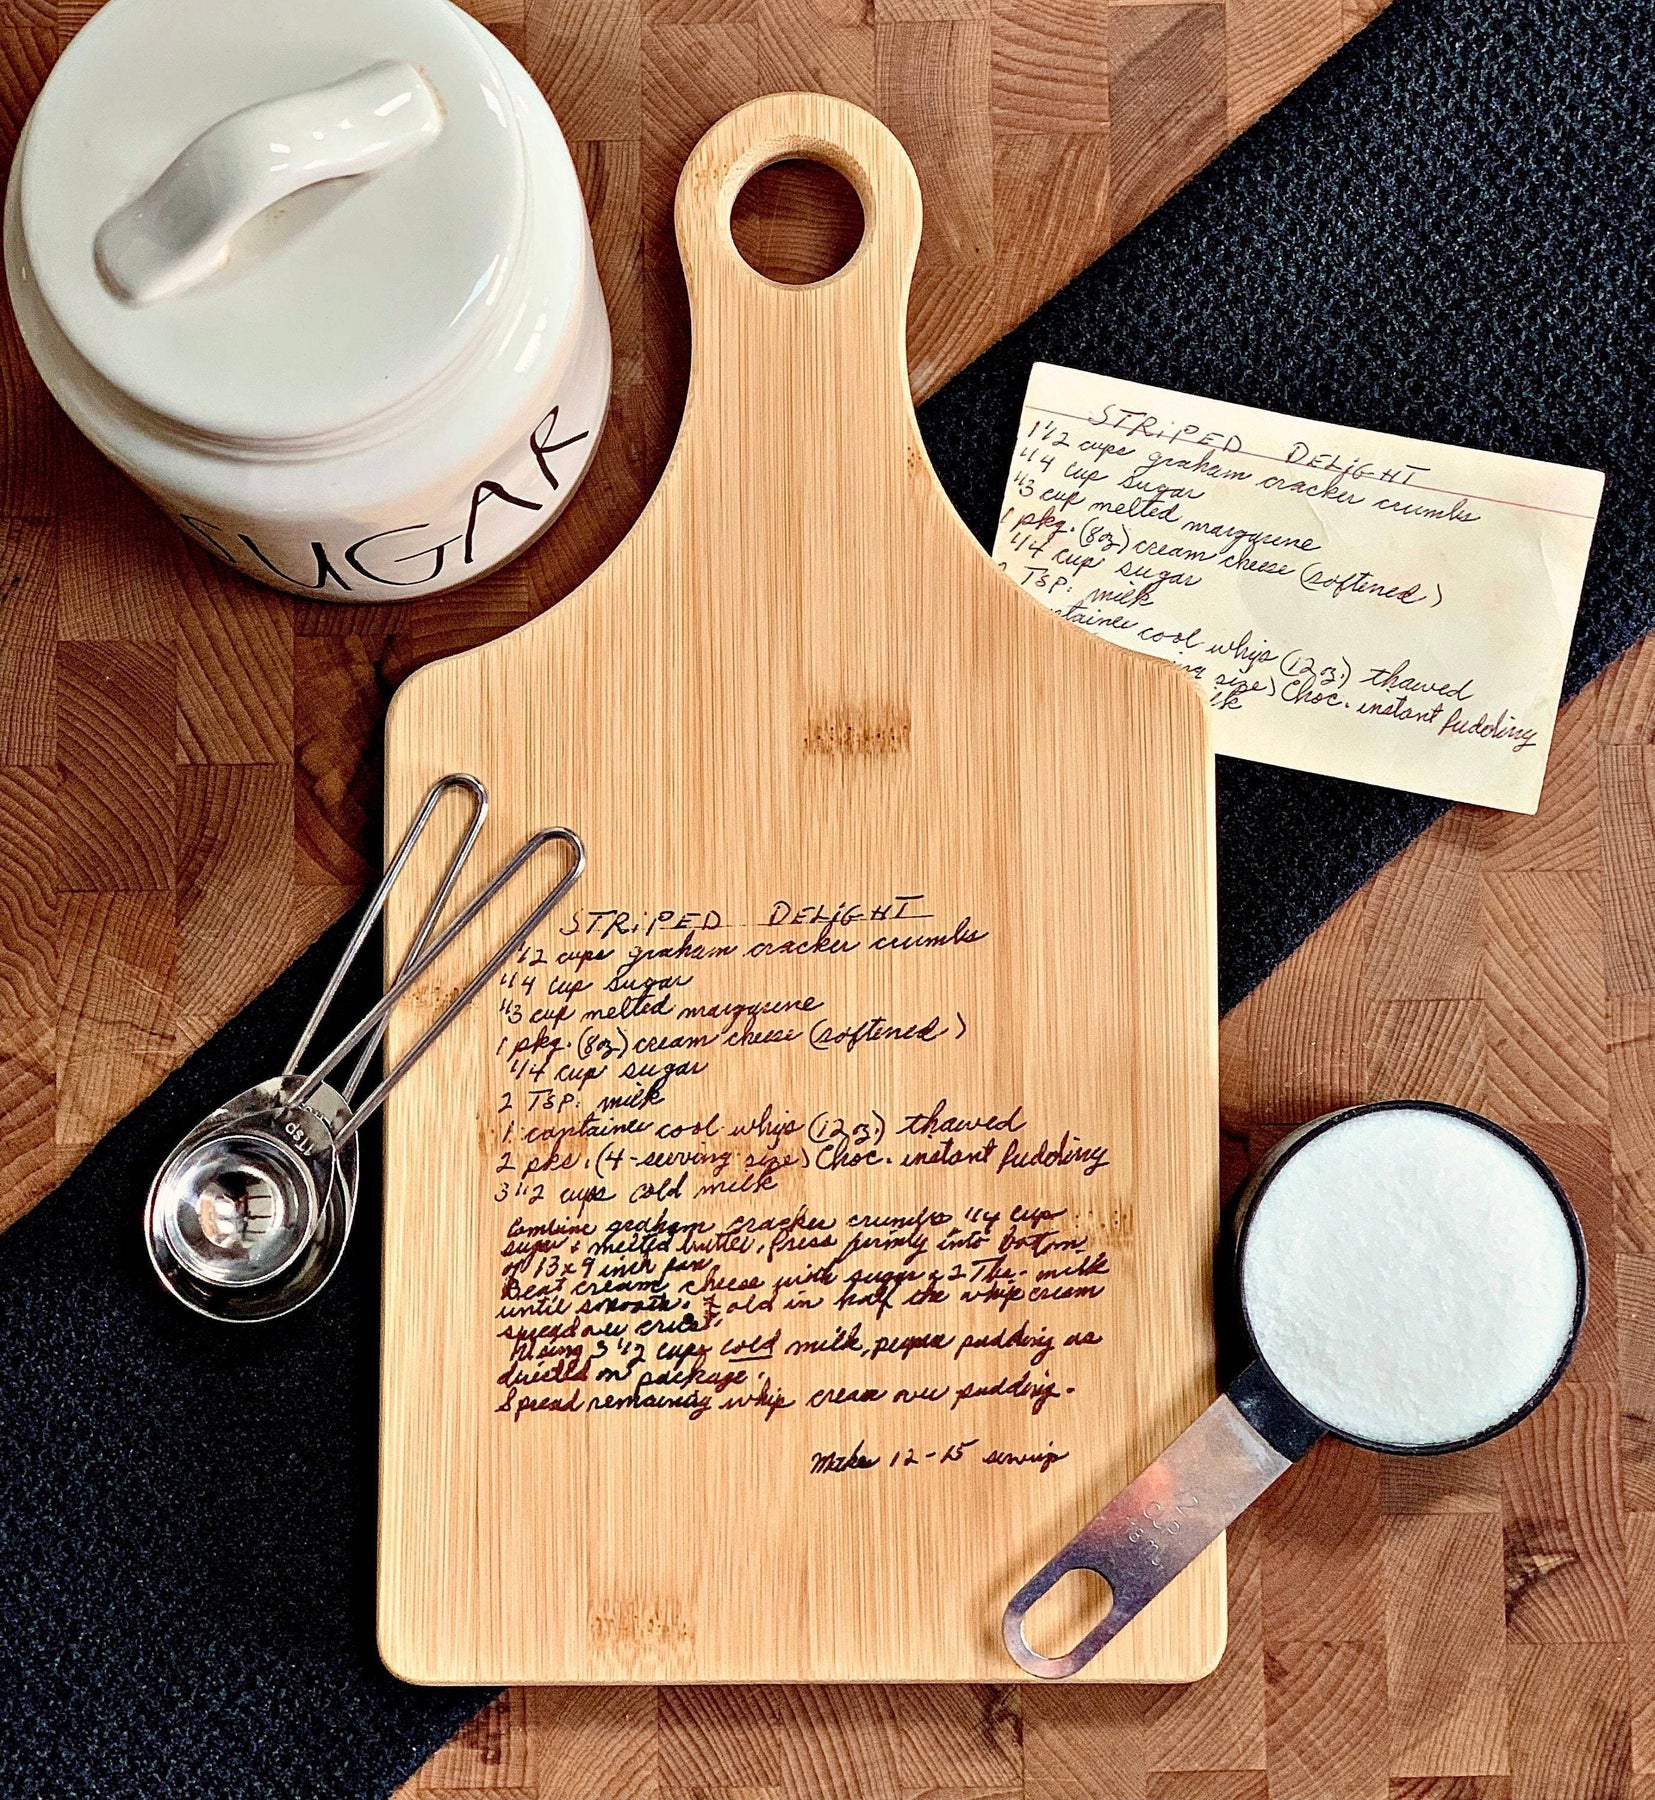 SUGAR
STRiPED DELiGHT
1 1/2 cups graham cracker crumbs
1/4 cup sugar
1/3 cup melted margarine
1 pkg. (8oz) cream cheese (softened)
1/4 cup sugar
TSP. milk
cool whip (12oz.) thawed
size) Choc. instant pudding
STRiPED DELiGHT
1 1/2 cups graham cracker crumbs
1/4 cup sugar
1/3 cup melted margarine
1 pkg. (8oz) cream cheese (softened)
1/4 cup sugar
2 TSP. milk
1 container cool whip (12oz.) thawed
2 pks. (4-serving size) Choc. instant pudding
3 1/2 cups cold milk
Combine graham cracker crumbs 1/4 cup
sugar + melted butter. Press firmly into botom
of 13x9 inch pan.
Beat cream cheese with sugar & 2 Tbs. milk
until smooth. Fold in half the whip cream
spread over crust.
Using 3 1/2 cups cold milk, prepare pudding as
directed on package.
Spread remaining whip cream over pudding.
Makes 12-15
1TSP
2 CUP